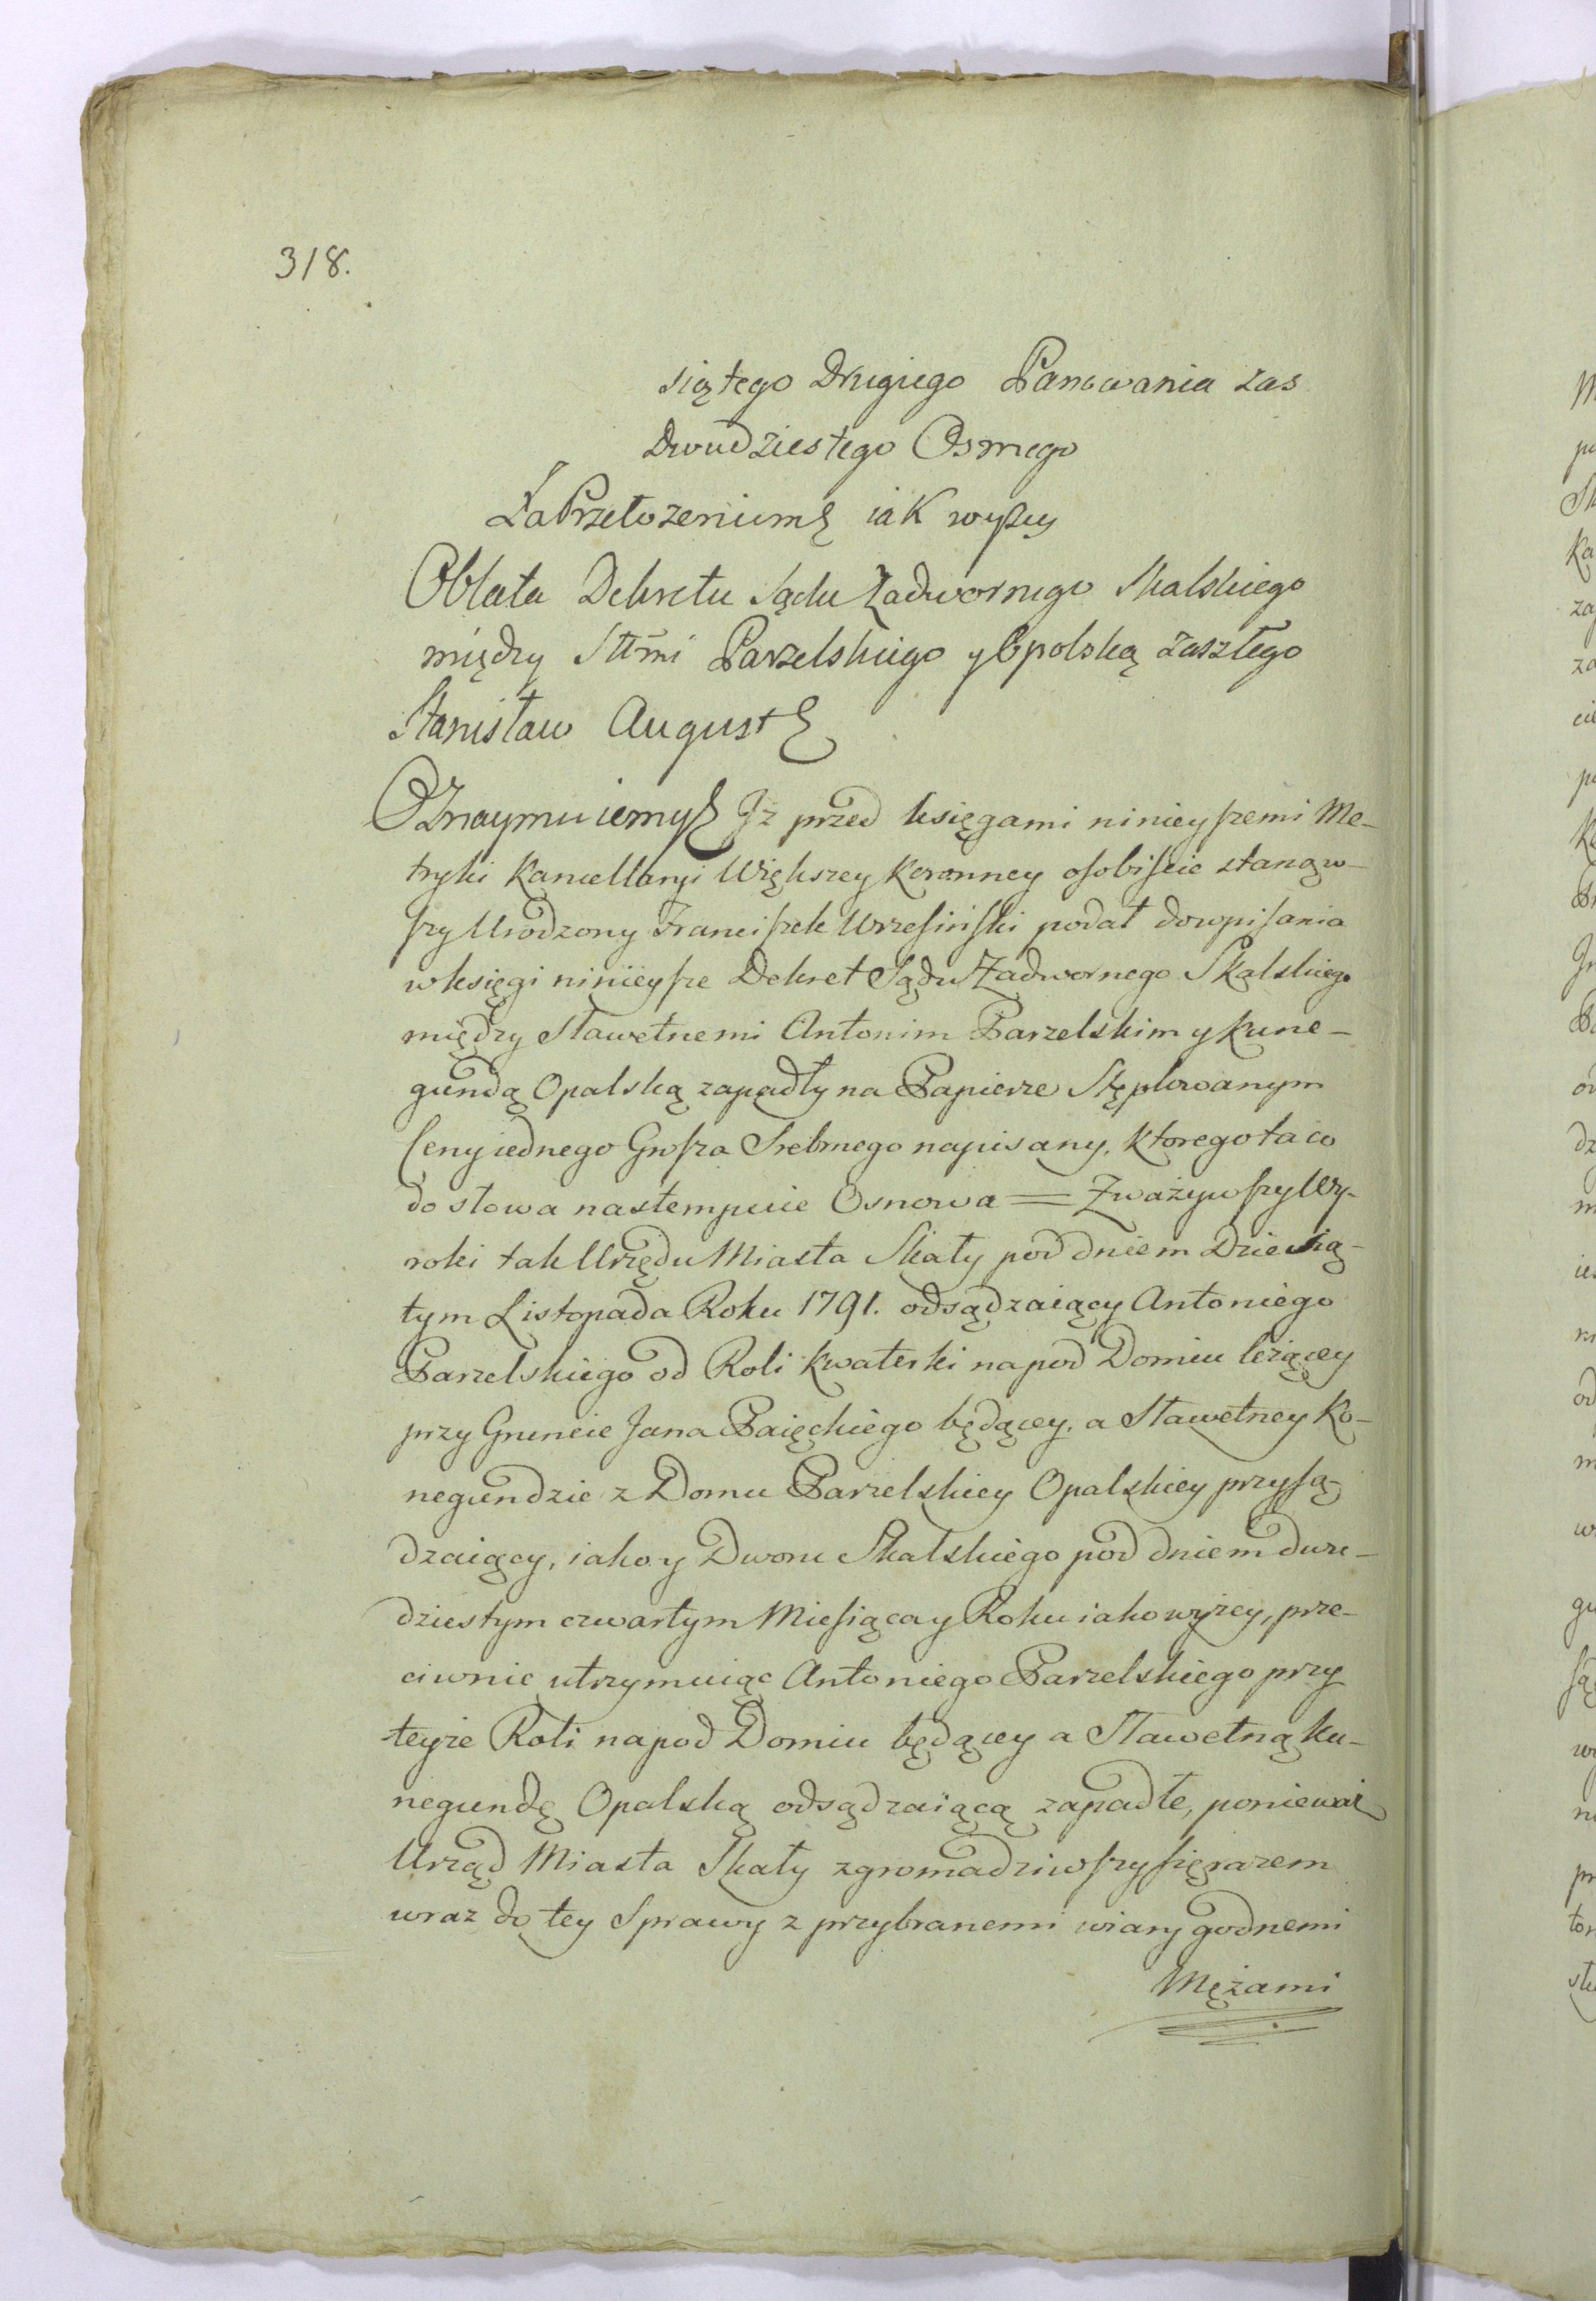 318.
siątego Drugiego Panowania zas
Dwudziestego Osmego
Za Przełozeniem iak wyszy
Oblata Dekretu Sądu Zadwornego Skalskiego
między Sttmi Parzelskiego y Opolską zaszłego
Stanisław August
Oznaymuiemy Jż przed księgami ninieyszemi Me-
tryki Kancellaryi Większey Koronney osobiscie stanąw-
szy Urodzony Franciszek Wrzesiński podał dowpisania
wksięgi ninieysze Dekret Sądu Zadwornego Skalskiego
między Sławetnemi Antonim Parzelskim y Kune-
gundą Opalską zapadły na Papierze Stęplowanym
Ceny iednego Grosza Srebrnego napisany, ktorego ta co
do słowa nastempuie Osnowa = Zważywszy Wy-
roki tak Urzędu Miasta Skały pod dniem Dziesią-
tym Listopada Roku 1791. odsądzaiący Antoniego
Parzelskiego od Roli Kwaterki napod Domiu leżącey
przy Gruncie Jana Paięckiego będącey, a Sławetney Ko-
negundzie z Domu Parzelskiey Opalskiey przysą-
dzaiący, iako y Dworu Skalskiego pod dniem dwu-
dziestym czwartym Miesiąca y Roku iako wyżey, prze-
ciwnie utrzymuiąc Antoniego Parzelskiego przy
teyże Roli napod Domiu będącey a Sławetną Ku-
negundę Opalską odsądzaiącą zapadłe, ponieważ
Urząd Miasta Skały zgromadziwszy się razem
wraz do tey Sprawy z przybranemi wiary godnemi
Mężami